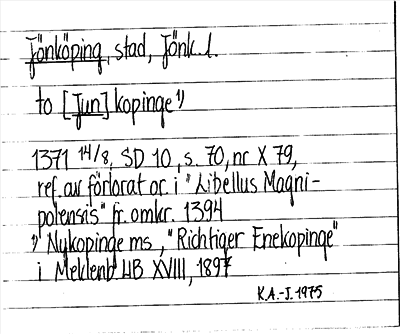 Jönköping, stad, Jönk. l.
to [Jun] kopinge ¹)
1371 14/8, SD 10, s. 70, nr X 79,
ref. av förlorat or. i "Libellus Magni-
polensis" fr. omkr. 1394
¹) Nykopinge ms, "Richtiger Enekopinge"
i Meklenb UB XVIII, 1897
K.A.-J. 1975